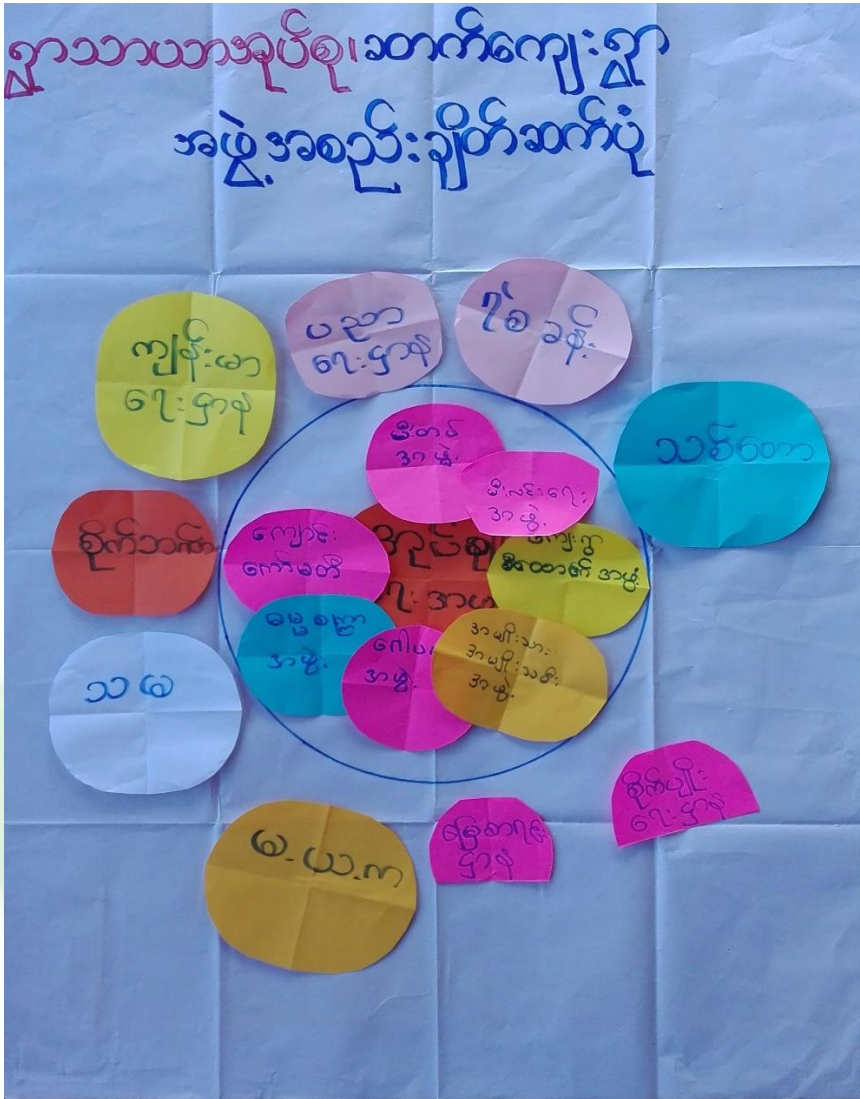 ရွာသာယာအုပ်စု၊ ဆတက်ကျေးရွာ
အဖွဲ့အစည်းချိတ်ဆက်ပုံ
ကျန်းမာ
ရေးဌာန
ပညာ
ရေးဌာန
ရဲစခန်း
သစ်တော
မီးသတ်
အဖွဲ့
မီးလင်းရေး
အဖွဲ့
စိုက်ဘဏ်
ကျောင်း
ကော်မတီ
အုပ်စု
ရေး အဖ
ကျေးရွာ
စီထောက် အဖွဲ့
ဓမ္မစကြာ
အဖွဲ့
ဂေါပ
အဖွဲ့
အမျိုးသား
အမျိုးသမီး
အဖွဲ့
သမ
စိုက်ပျိုး
ရေးဌာန
မြေစာရင်း
ဌာန
မ.ယ.က